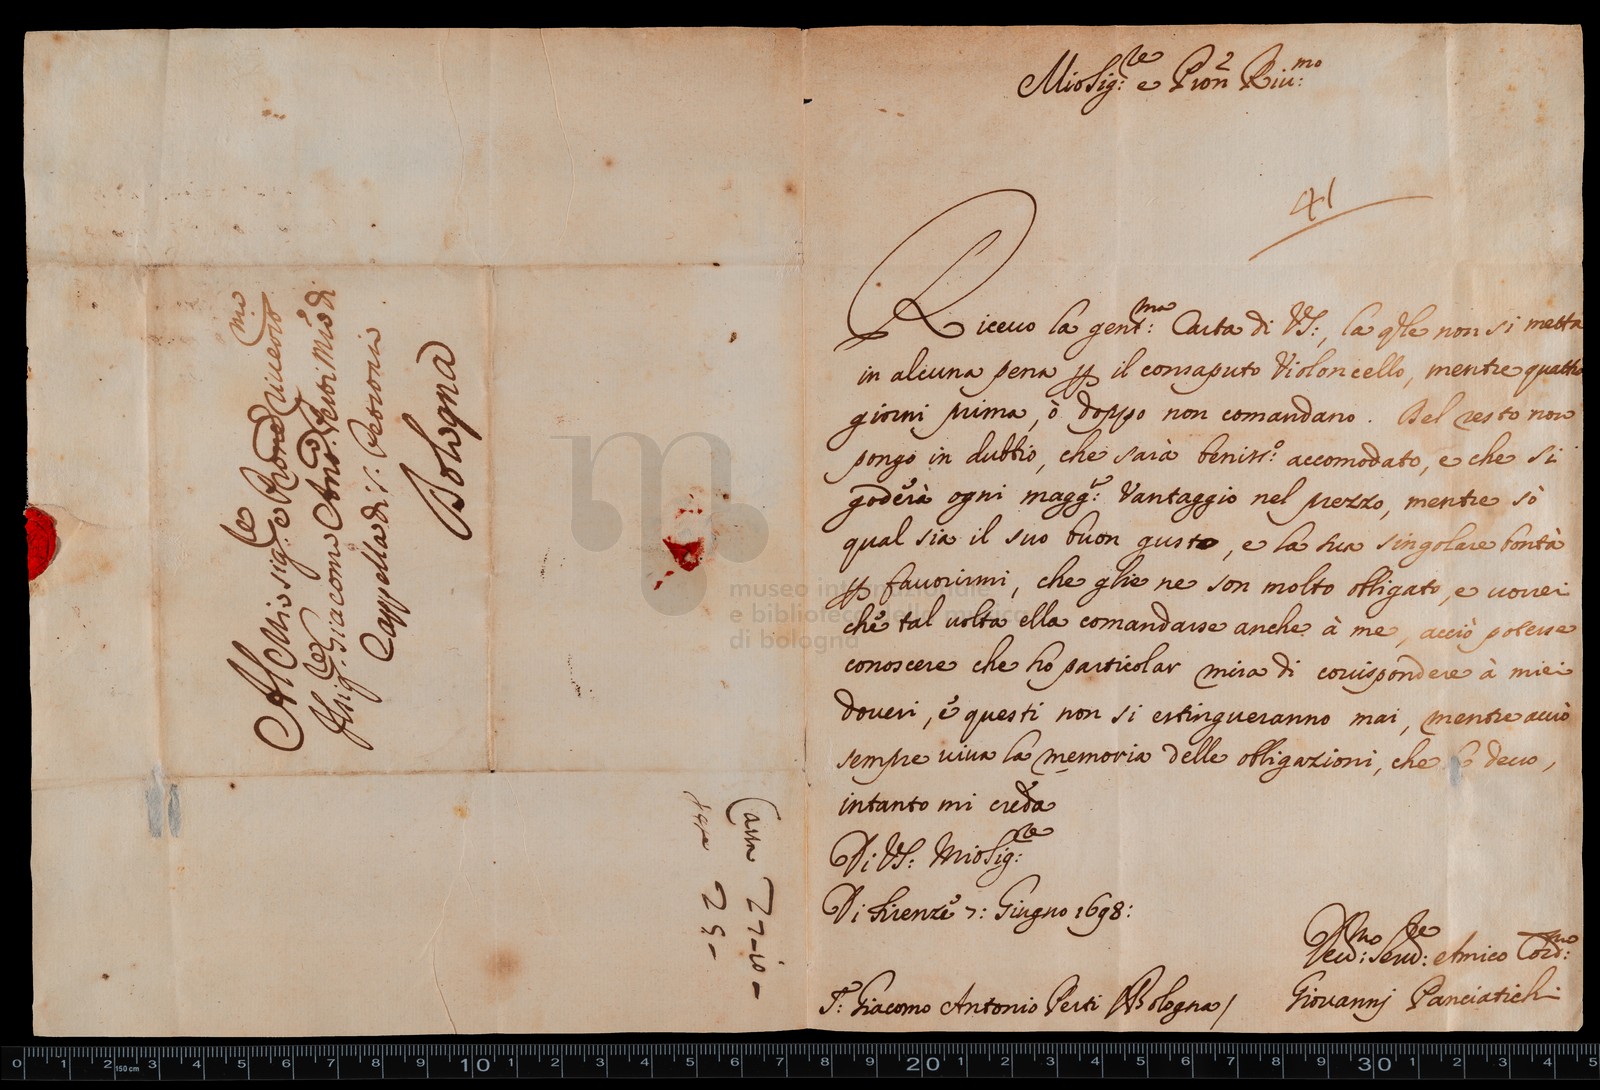 Mio Sig:re e Pron Riu:mo
41
Riceuo la gent:ma Carta di VS:, la qle non si metta
in alcuna pena p il consaputo Violoncello, mentre quattro
giorni prima, ò doppo non comandano. Del resto non
pongo in dubbio, che sarà beniss:o accomodato, e che si
goderà ogni magg:r Vantaggio nel prezzo, mentre sò
qual sia il suo buon gusto, e la sua singolare bontà
p fauorirmi, che glie ne son molto obligato, e uorrei
che tal uolta ella comandasse anche à me, acciò potesse
conoscere che ho particolar mira di corrispondere à miei
doueri, e questi non si estingueranno mai, mentre
sempre uiua la memoria delle obligazioni, che deuo,
intanto mi creda
Di VS: Mio Sig:re
Di Firenze 7: Giugno 1698:
Deu:mo Seru:re e Amico Cord:mo
Giovannj Panciatichi
S: Giacomo Antonio Perti Bologna/
Al Mio Sig:re e Pron Riuer:mo
Il Sig:re Giacomo Ant:o Perti Mro di
Cappella di S: Petronio
Bologna
27-10-
25-
museo internazionale
e biblioteca della musica
di bologna